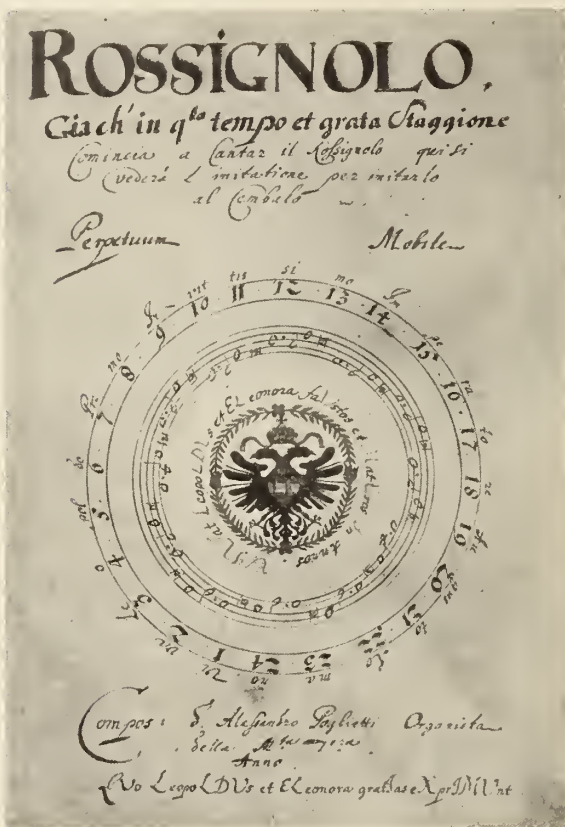 ROSSIGNOLO.
Gia ch' in q.sto tempo et grata Staggione
Comincia a Cantar il Rossignolo qui si
vederà l imitatione per imitarlo
al Cembalo
Perpetuum Mobile
va Le o pol do Pri mo In vit tis si mo Im pe ra to re Au gus to Ro ma no
1 2 3 4 5 6 7 8 9 10 11 12 13 14 15 16 17 18 19 20 21 22 23 24
VIVat LeopoLDVs et ELeonora faVstos et In Annos
Compos: d. Alessandro Poglietti Organista
della M.ta
Anno
QVo LeopoLDVs et ELeonora gratIas eXprIMVnt